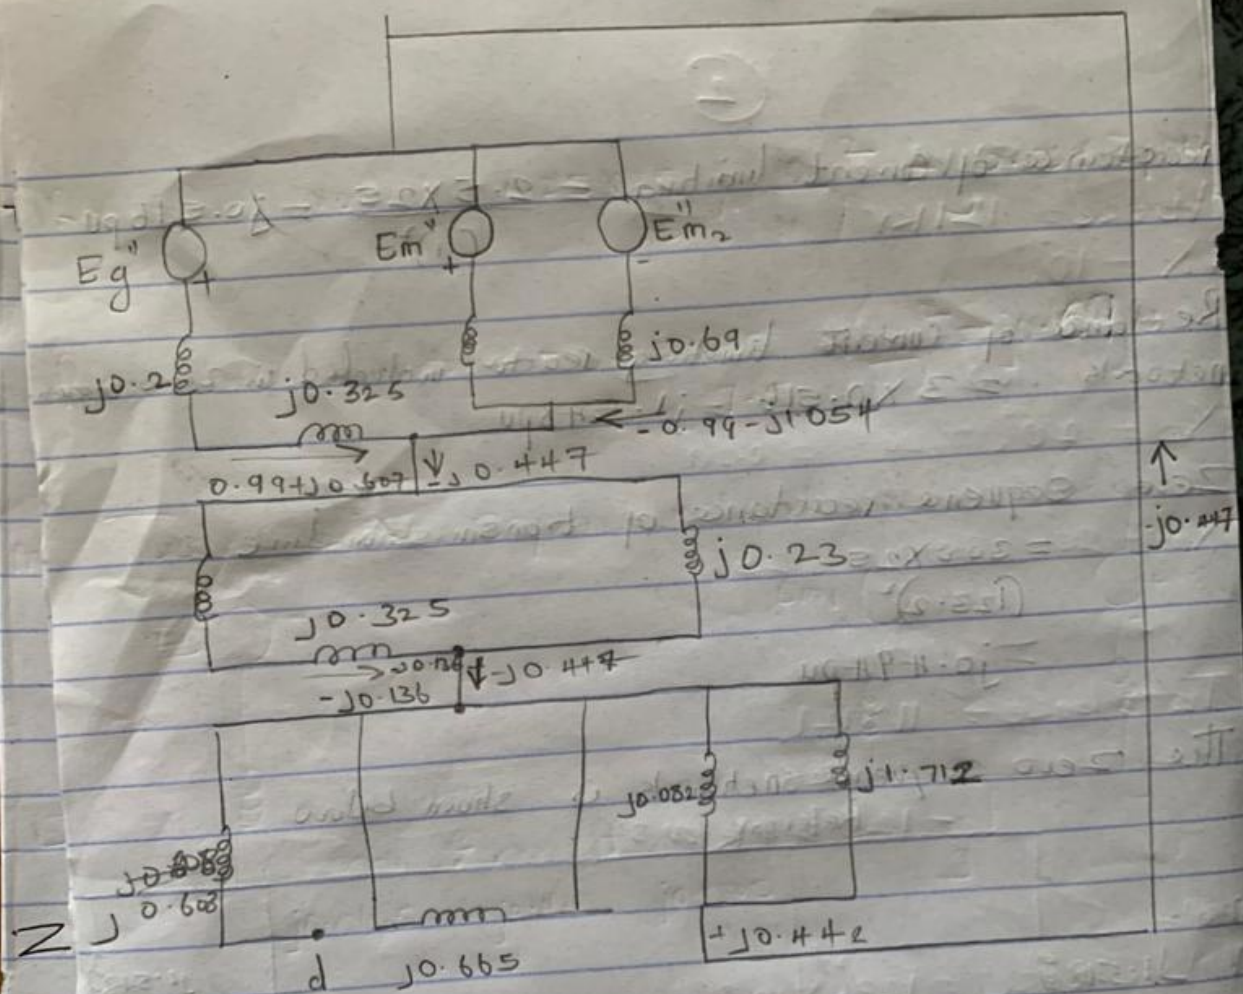 Eg"
+
Em"
+
Em2"
-
j0.2
j0.325
j0.69
-0.99-j1.054
0.99+j0.607
-j0.447
-j0.447
j0.23
j0.325
-j0.136
-j0.447
j0.082
j1.712
j0.608
N
d
j0.665
+j0.442